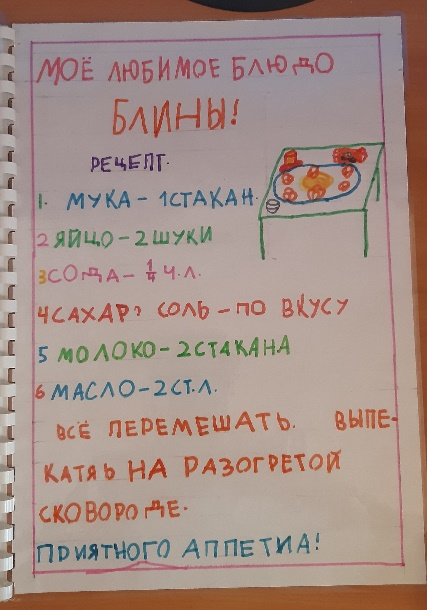 МОЁ ЛЮБИМОЕ БЛЮДО
БЛИНЫ!
РЕЦЕПТ.
1. МУКА - 1СТАКАН.
2 ЯЙЦО - 2 ШУКИ
3СОДА - 1/4 Ч.Л.
4САХАР, СОЛЬ - ПО ВКУСУ
5 МОЛОКО - 2СТАКАНА
6 МАСЛО - 2СТ.Л.
ВСЁ ПЕРЕМЕШАТЬ. ВЫПЕ-
КАТЯЬ НА РАЗОГРЕТОЙ
СКОВОРОДЕ.
ПРИЯТНОГО АППЕТИА!